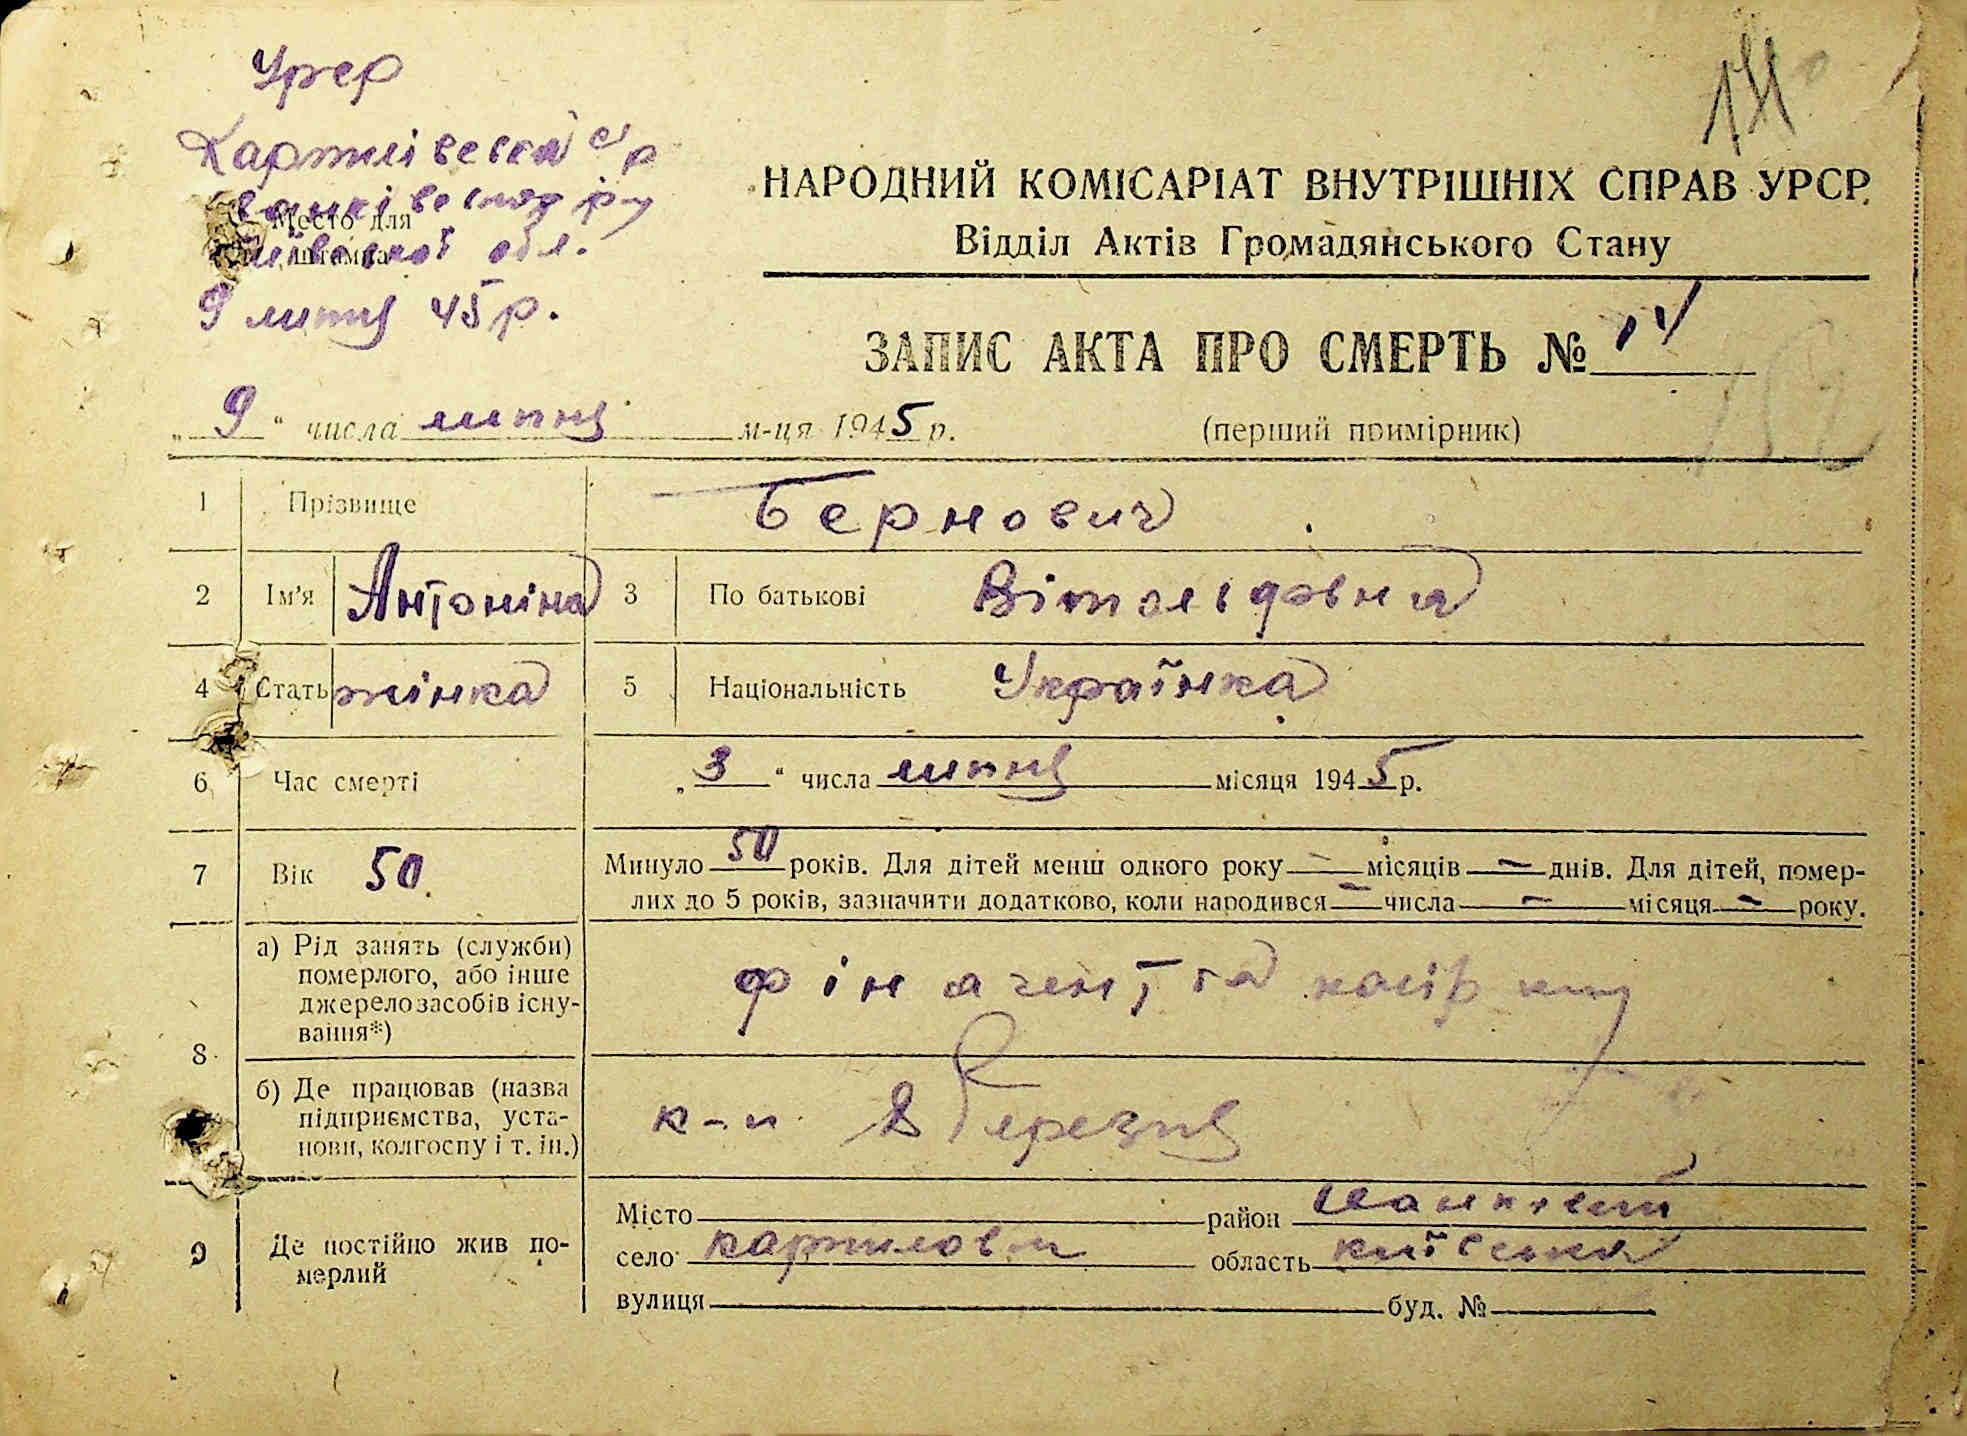 Урср
с/р
Место для
штампа
обл.
9 липня 45 р.
НАРОДНИЙ КОМІСАРІАТ ВНУТРІШНІХ СПРАВ УРСР.
Відділ Актів Громадянського Стану
ЗАПИС АКТА ПРО СМЕРТЬ № 14
„ 9 “ числа липня м-ця 1945 р. (перший примірник)
1 Прізвище Бернович
2 Ім’я Антоніна 3 По батькові Вітольдовна
4 Стать жінка 5 Національність Українка
6 Час смерті „ 3 “ числа липня місяця 1945 р.
7 Вік 50 Минуло 50 років. Для дітей менш одного року — місяців — днів. Для дітей, помер-
лих до 5 років, зазначити додатково, коли народився — числа — місяця — року.
8 а) Рід занять (служби)
померлого, або інше
джерело засобів існу-
вання*)
фінагент, та касір
б) Де працював (назва
підприємства, уста-
нови, колгоспу і т. ін.)
8 Березня
9 Де постійно жив по-
мерлий
Місто район
село область київська
вулиця буд. №